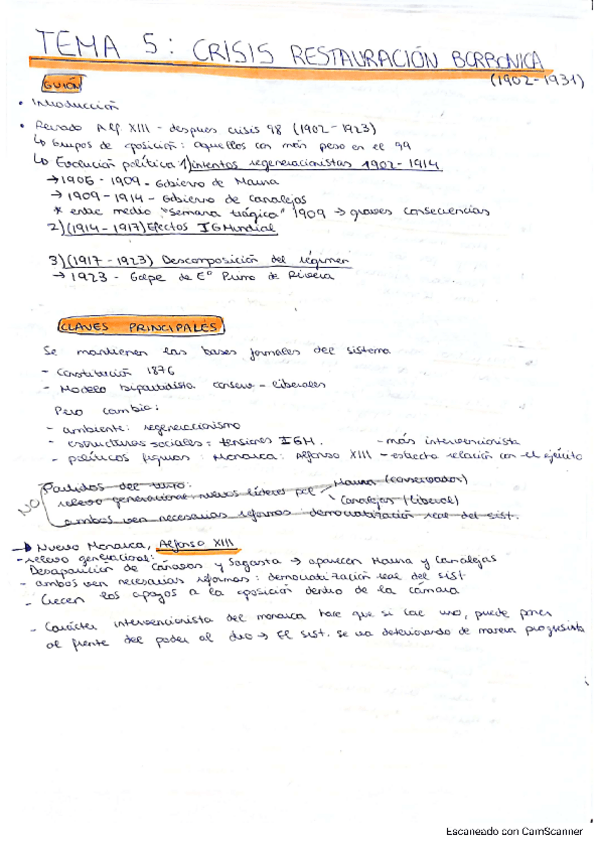 TEMA 5: CRISIS RESTAURACIÓN BORBONICA
(1902-1931)
GUIÓN
• Introducción
• Reinado Alf XIII - despues crisis 98 (1902-1923)
↳ Grupos de oposición: aquellos con más peso en el 99
↳ Evolución política 1) intentos regeneracionistas 1902-1914
→ 1906 - 1909 - Gobierno de Maura
→ 1909 - 1914 - Gobierno de Canalejas
* entre medio "semana trágica" 1909 → graves consecuencias
2) (1914-1917) Efectos I G Mundial
3) (1917-1923) Descomposición del régimen
→ 1923 - Golpe de Eº Primo de Rivera
CLAVES PRINCIPALES
Se mantienen las bases formales del sistema
- Constitución 1876
- Modelo bipartidista conserv - liberales
Pero cambia:
- ambiente: regeneracionismo
- estructuras sociales: tensiones I GM.
- políticos figuras: Monarca: Alfonso XIII
- más intervencionista
- estrecha relación con el ejército
NO
Partidos del turno:
relevo generacional: nuevos líderes
Maura (conservador)
Canalejas (liberal)
ambos ven necesarias reformas: democratización real del sist.
→ Nuevo Monarca, Alfonso XIII
- relevo generacional:
Desaparición de Cánovas y Sagasta → aparecen Maura y Canalejas
- ambos ven necesarias reformas: democratización real del sist
- Crecen los apoyos a la oposición dentro de la cámara
- Carácter intervencionista del monarca hace que si cae uno, puede poner
al frente del poder al otro → El sist. se va deteriorando de manera progresista
Escaneado con CamScanner